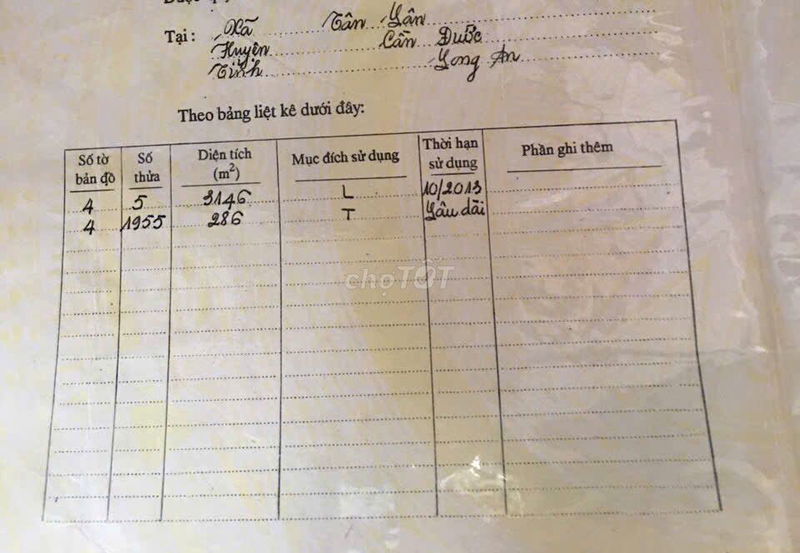 Tại: Xã Tân Lân
Huyện Cần Đước
Tỉnh Long An
Theo bảng liệt kê dưới đây:
Số tờ bản đồ Số thửa Diện tích (m²) Mục đích sử dụng Thời hạn sử dụng Phần ghi thêm
4 5 3146 L 10/2013
4 1955 286 T Lâu dài
chợTỐT